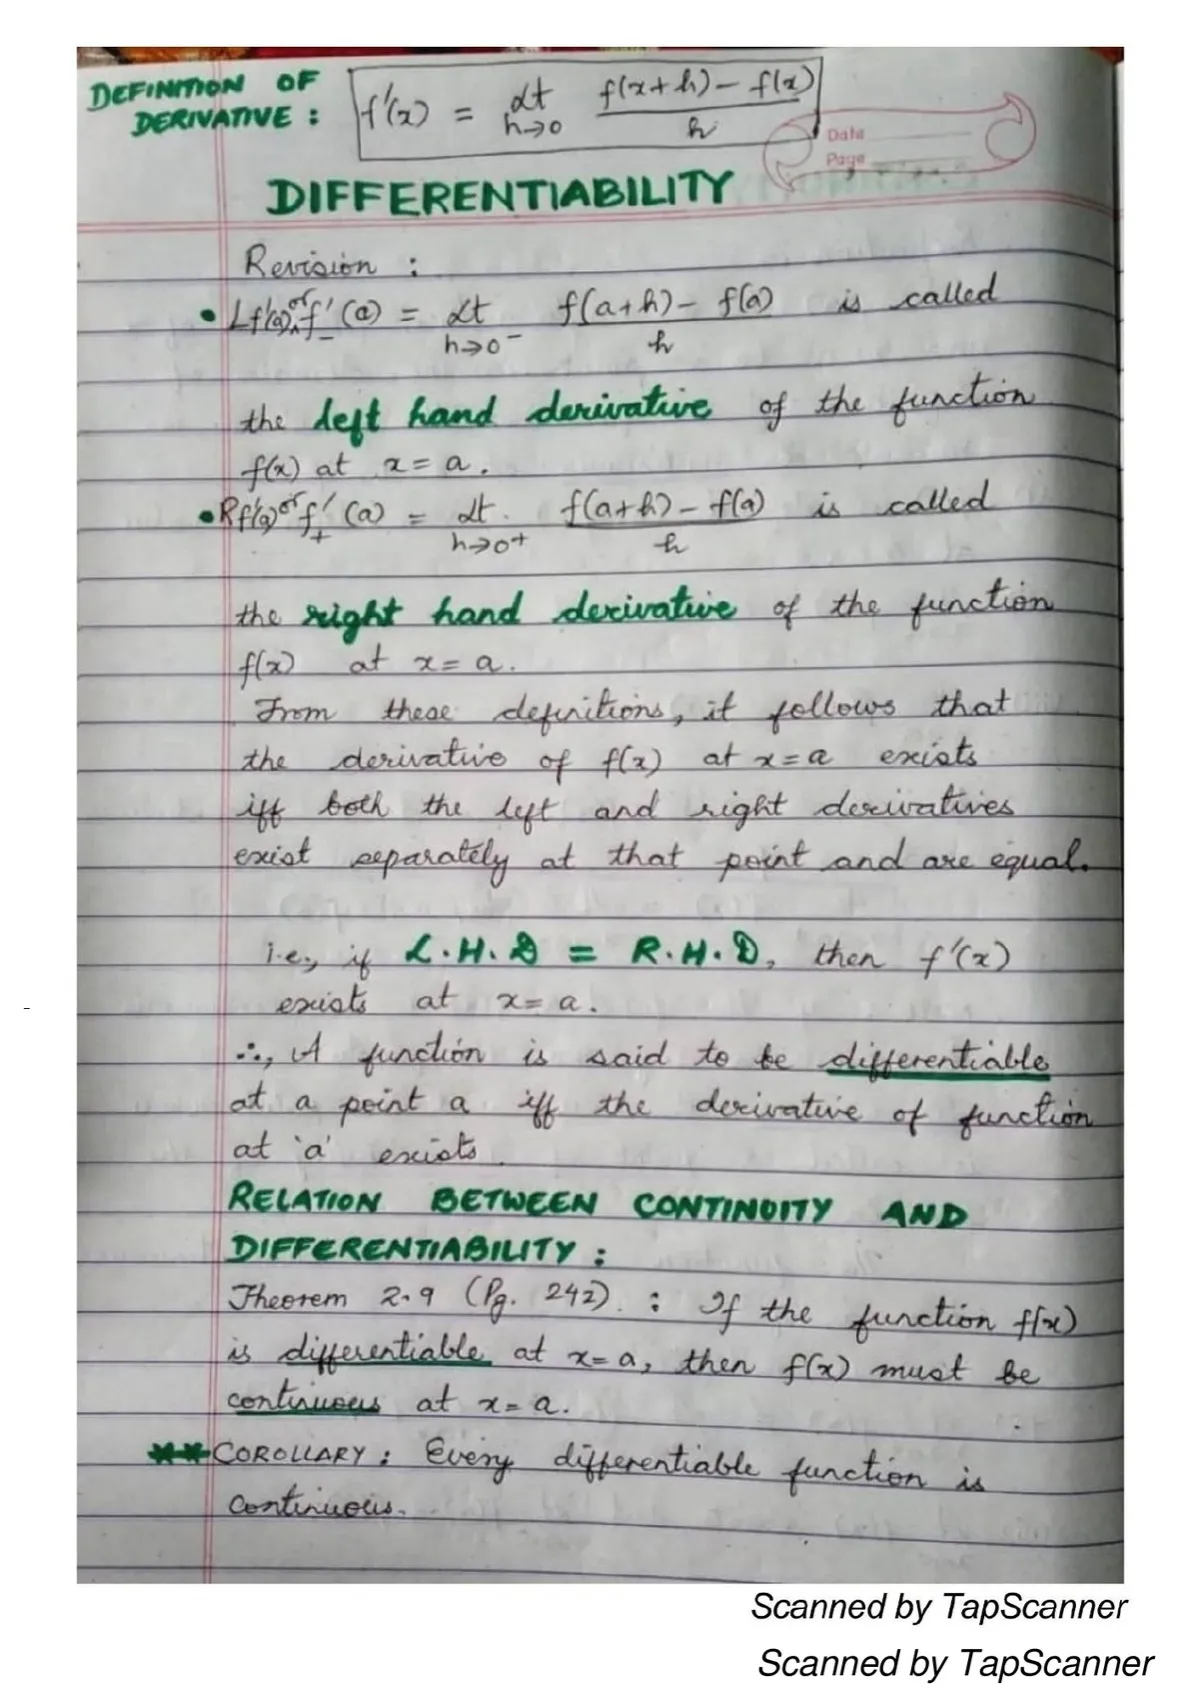 DEFINITION OF
DERIVATIVE : f'(x) = Lt h→0 f(x+h) - f(x) / h
Date
Page
DIFFERENTIABILITY
Revision :
• Lf'(a) or f'₋(a) = Lt h→0⁻ f(a+h) - f(a) / h is called
the left hand derivative of the function
f(x) at x = a.
• Rf'(a) or f'₊(a) = Lt. h→0+ f(a+h) - f(a) / h is called
the right hand derivative of the function
f(x) at x = a.
From these definitions, it follows that
the derivative of f(x) at x = a exists
iff both the left and right derivatives
exist separately at that point and are equal.
i.e., if L.H.D = R.H.D, then f'(x)
exists at x = a.
∴, A function is said to be differentiable
at a point a iff the derivative of function
at 'a' exists.
RELATION BETWEEN CONTINUITY AND
DIFFERENTIABILITY :
Theorem 2.9 (Pg. 242). : If the function f(x)
is differentiable at x = a, then f(x) must be
continuous at x = a.
** COROLLARY : Every differentiable function is
continuous.
Scanned by TapScanner
Scanned by TapScanner